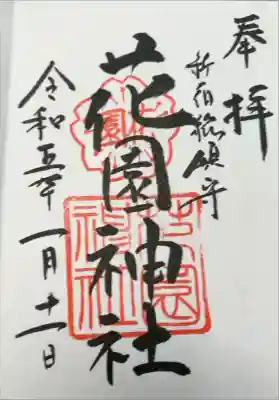 奉拝
新宿総鎮守
花園神社
令和五年一月十一日
花園神社